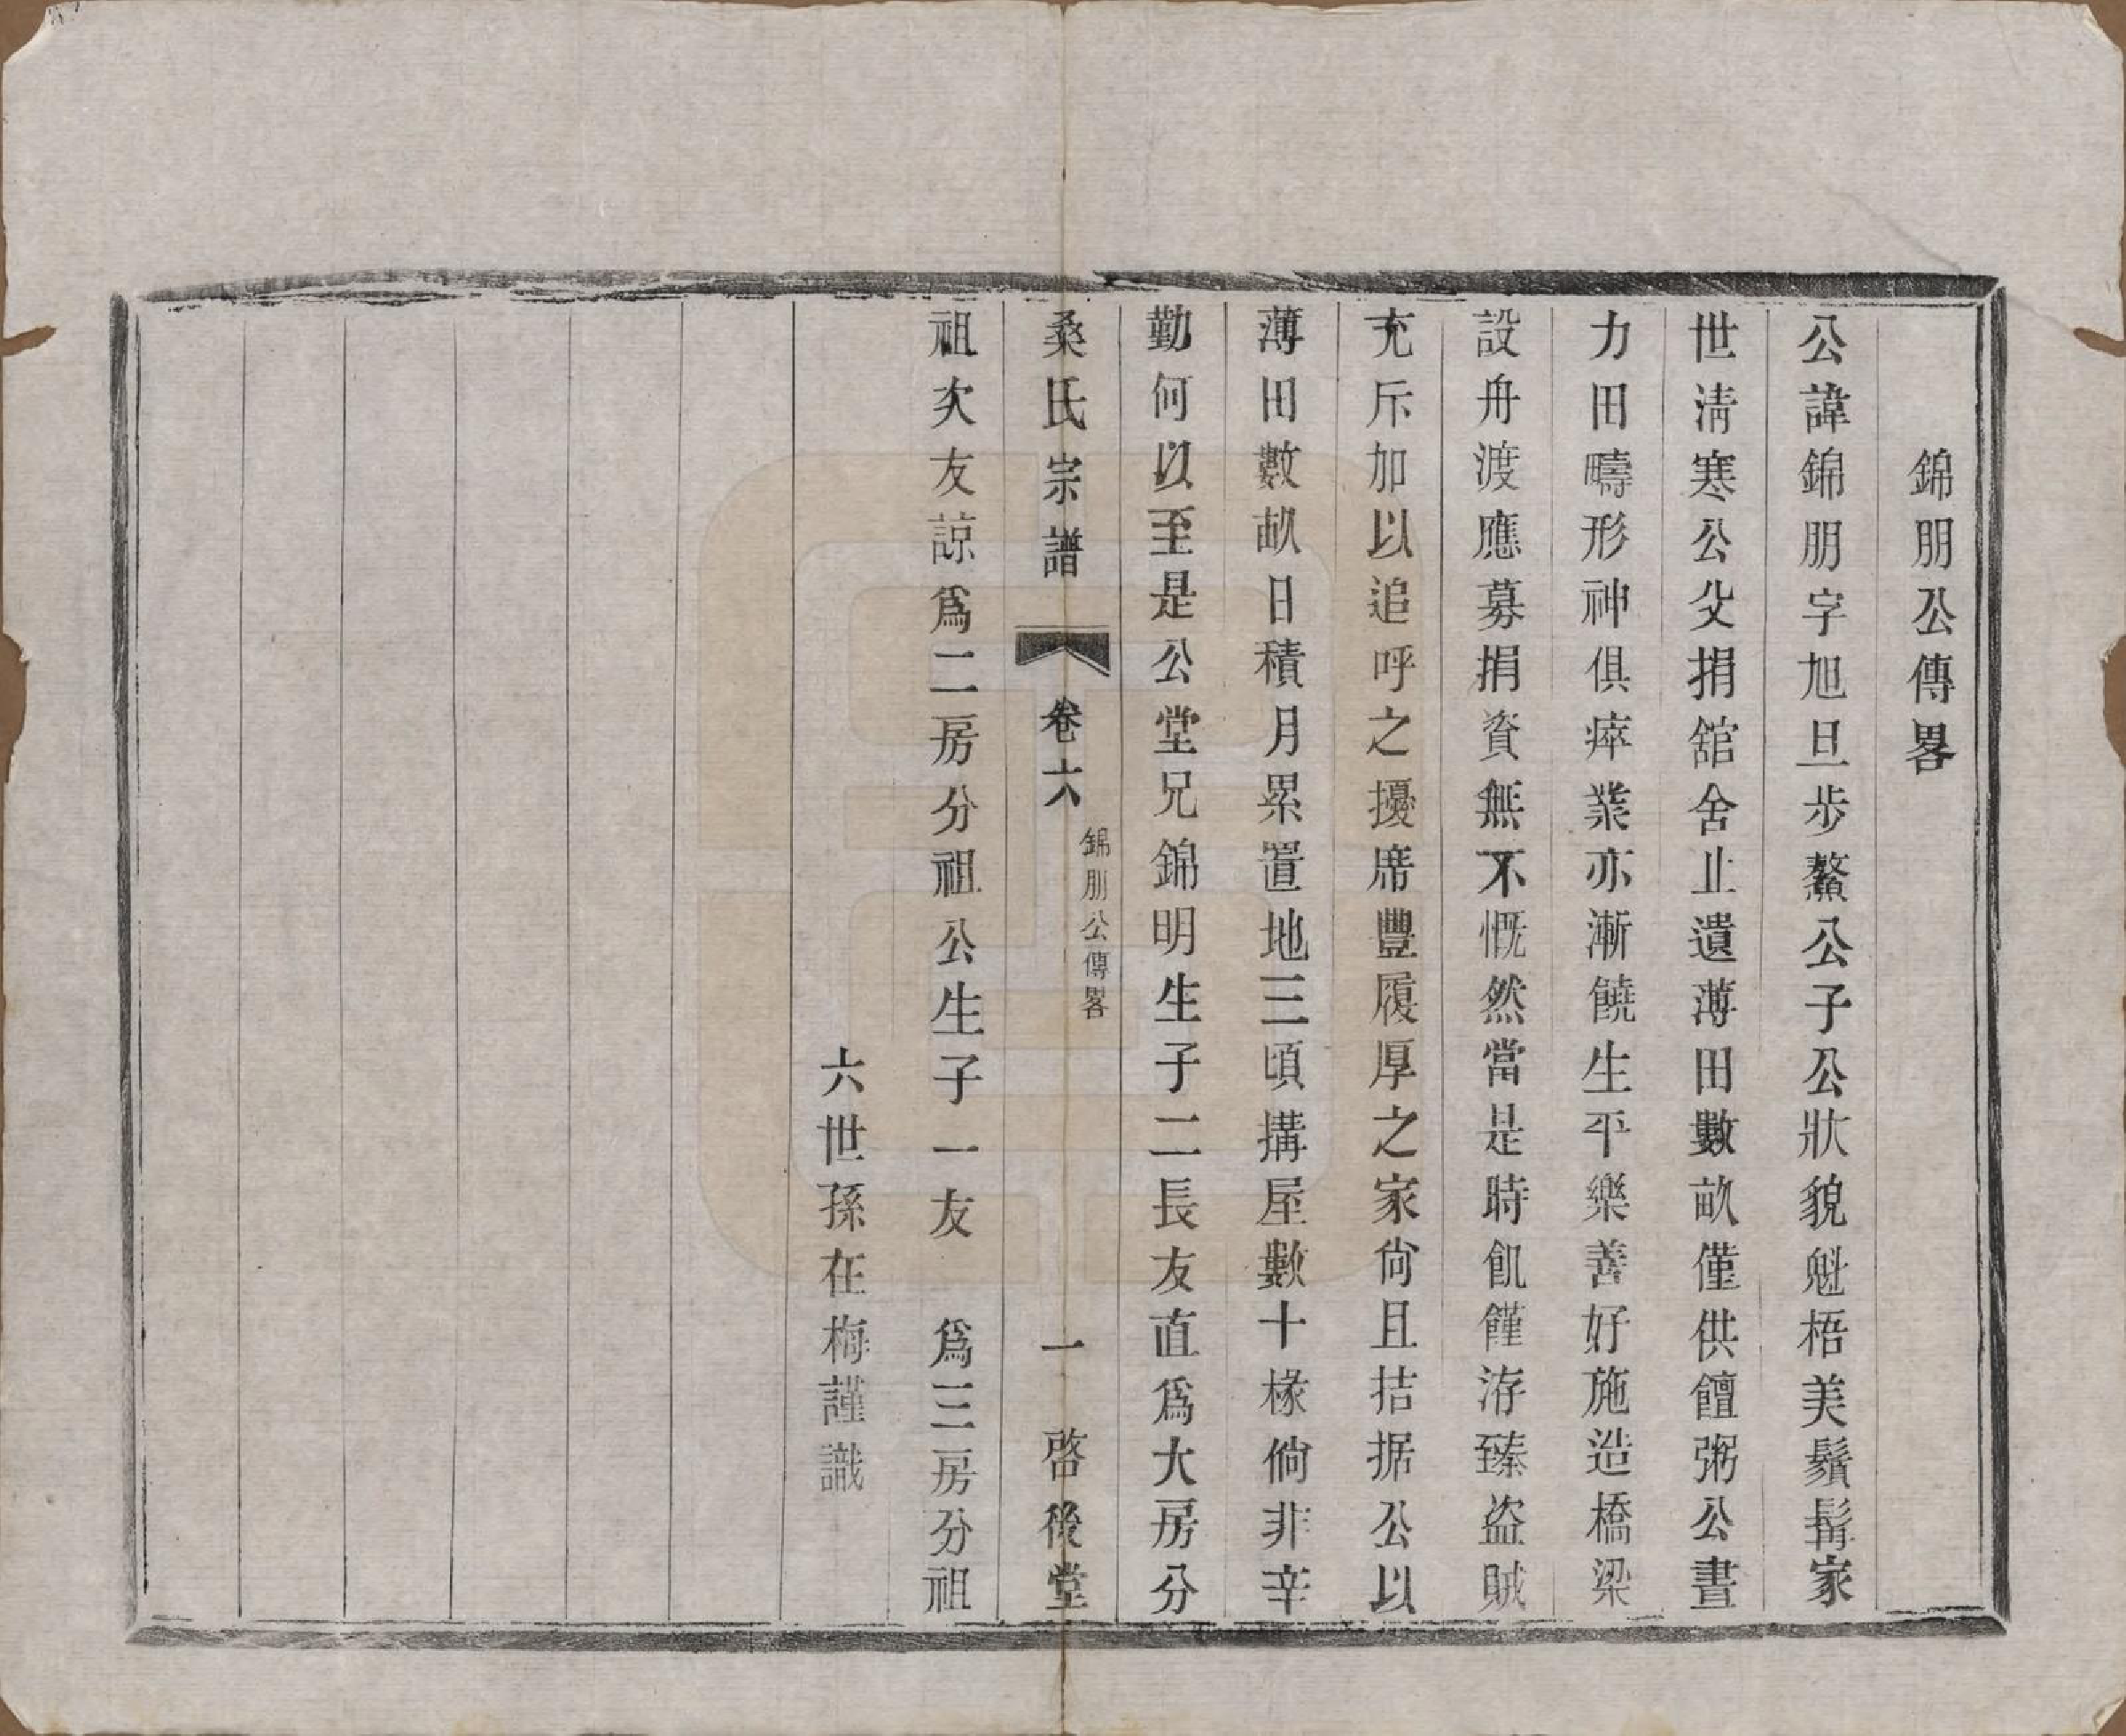 錦朋公傳畧
公諱錦朋字旭旦步鰲公子公狀貌魁梧美鬚髯家
世淸寒公父捐舘舍止遺薄田數畝僅供饘粥公晝
力田疇形神俱瘁業亦漸饒生平樂善好施造橋梁
設舟渡應募捐資無不慨然當是時飢饉洊臻盜賊
充斥加以追呼之擾席豐履厚之家尙且拮据公以
薄田數畝日積月累置地三頃搆屋數十椽倘非辛
勤何以至是公堂兄錦明生子二長友直爲大房分
桑氏宗譜 卷六 錦朋公傳畧 一 啓後堂
祖次友諒爲二房分祖公生子一友 爲三房分祖
六世孫在梅謹識